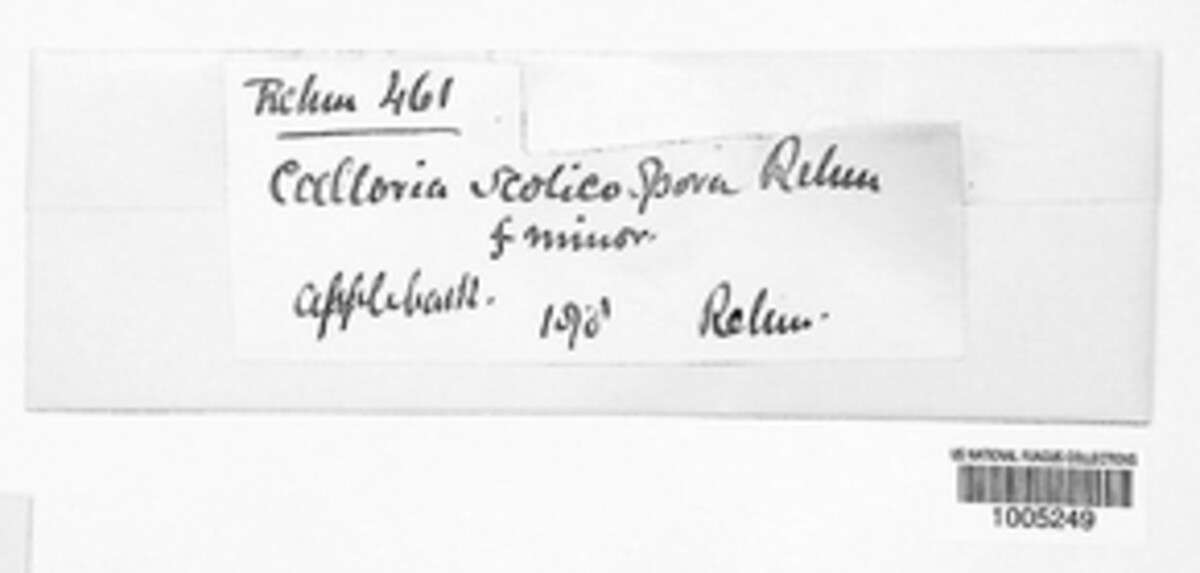 Rehm 461
Calloria scolicospora Rehm
f minor.
applebark.
Rehm.
US NATIONAL FUNGUS COLLECTIONS
1005249